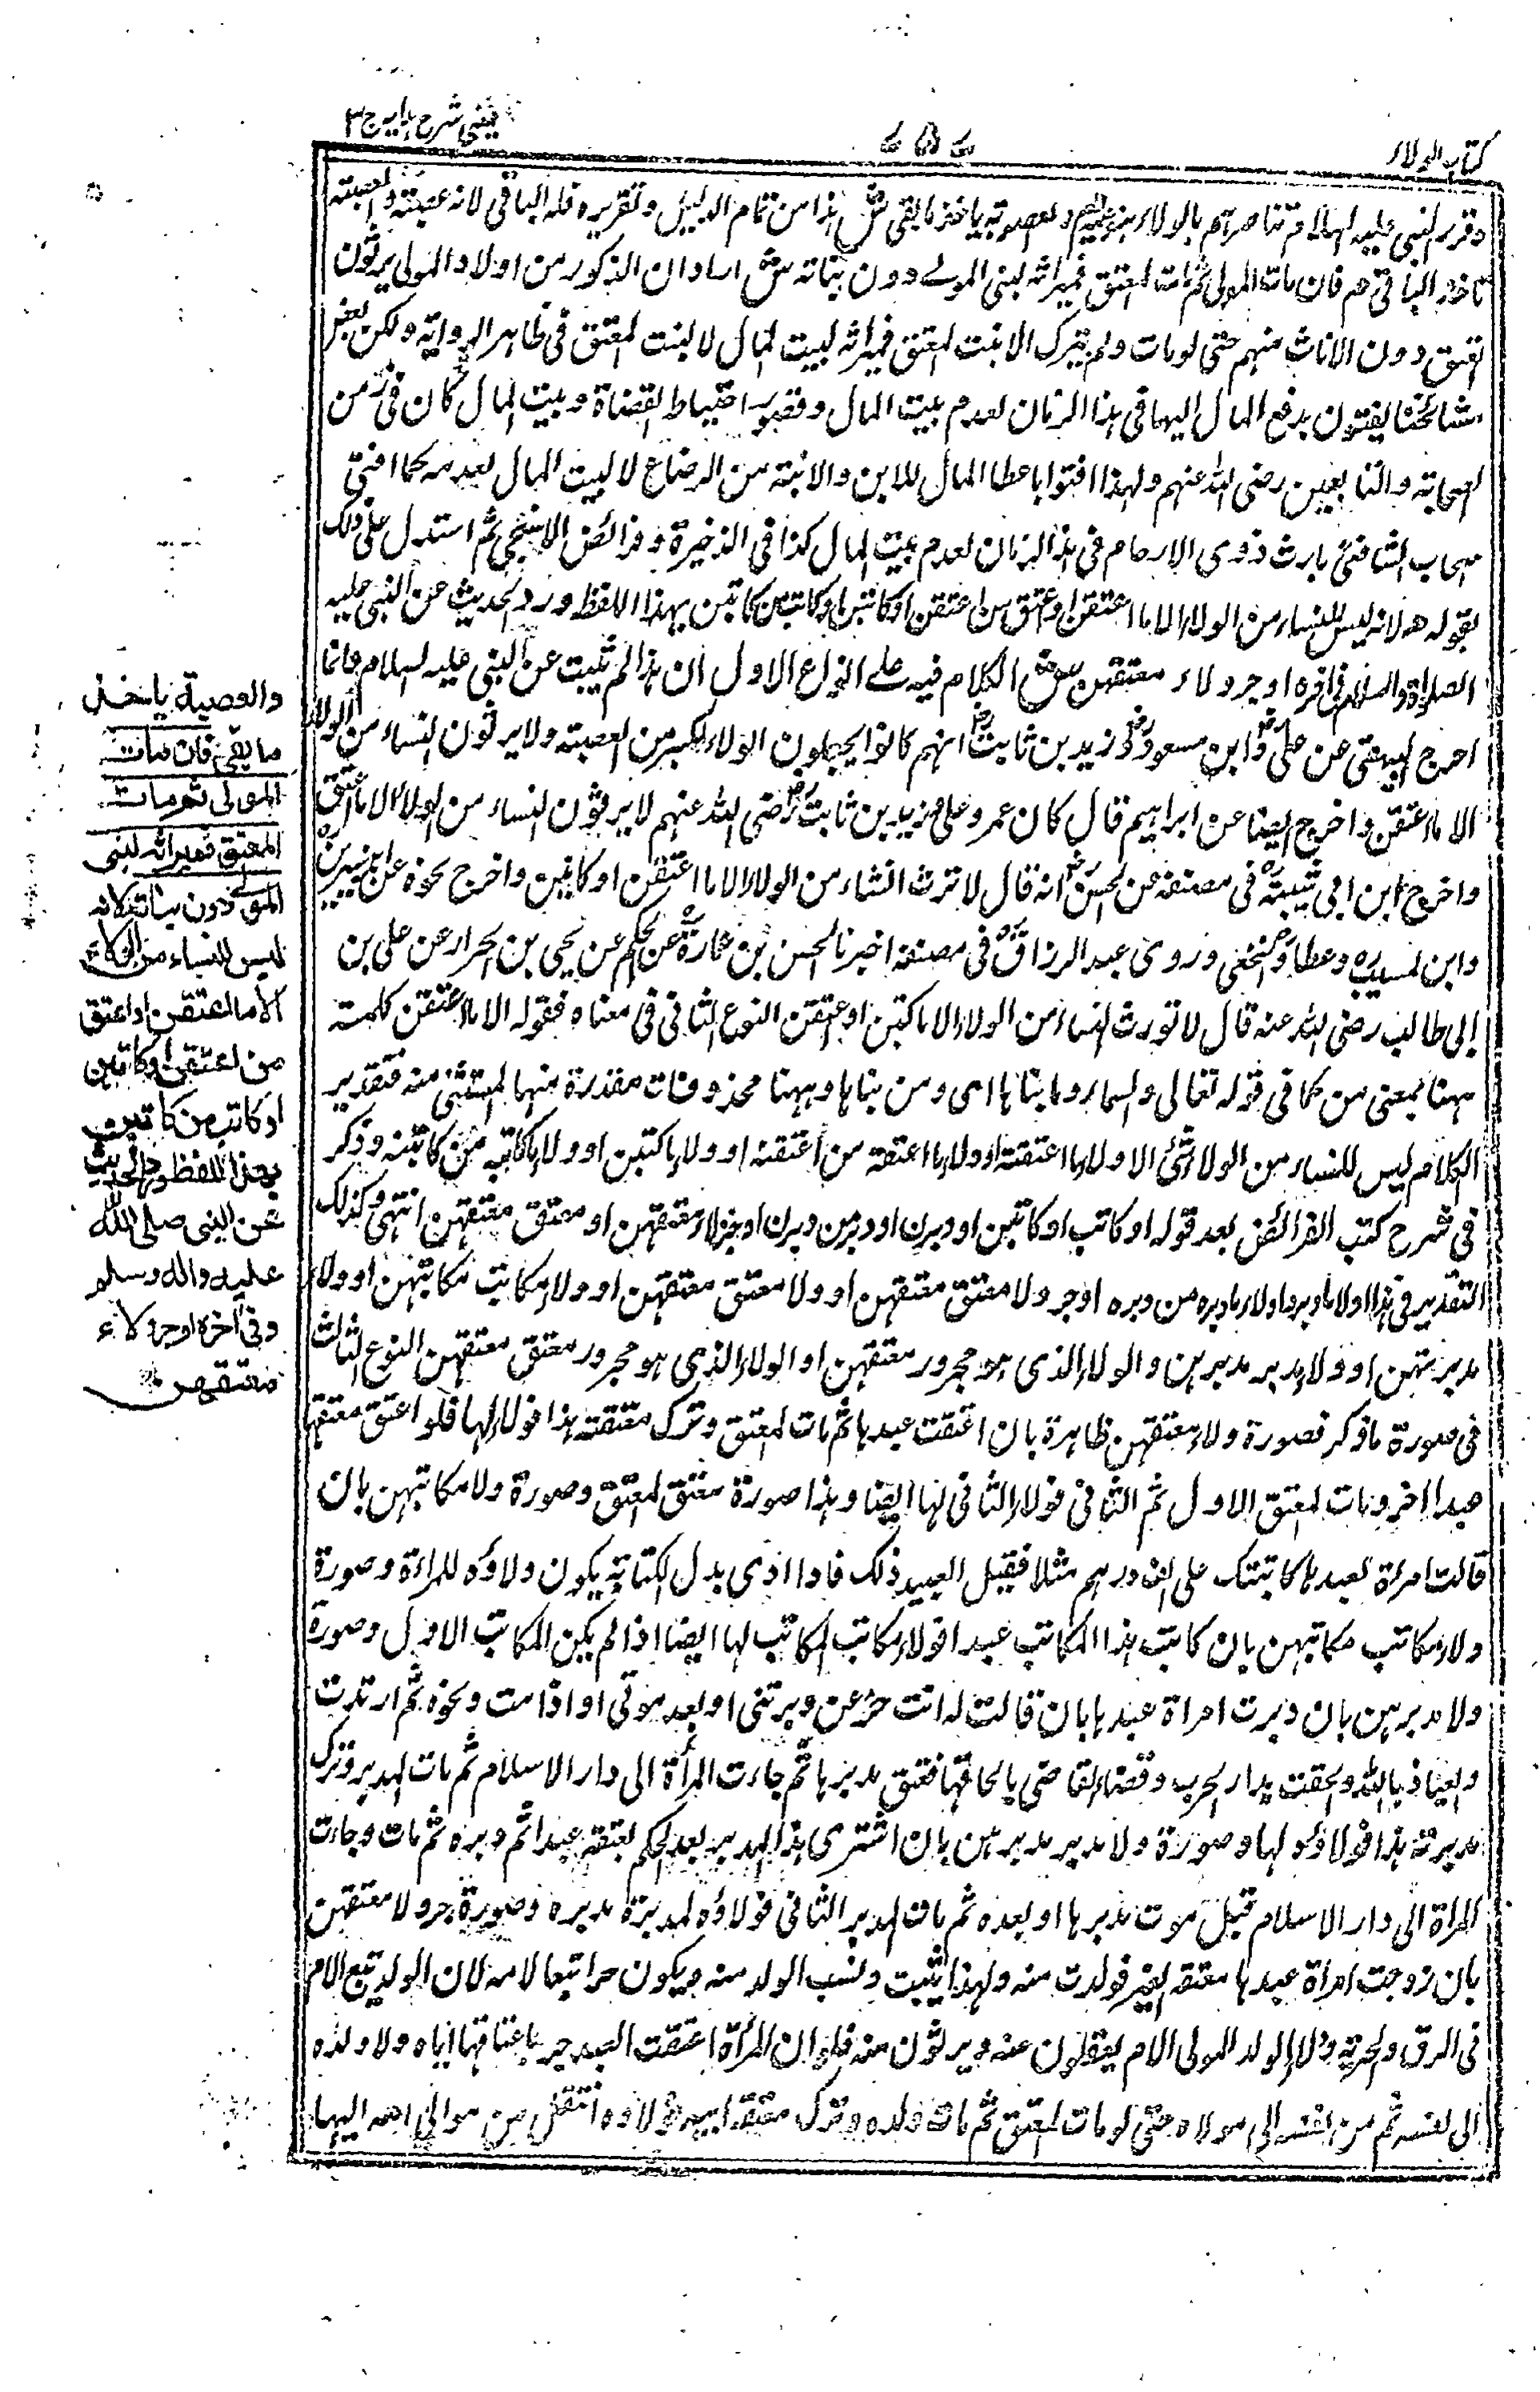 كتاب الولاء
عينى شرح هدايه ج ٣
وقرر النبى عليه السلام تناصرهم بالولاء بنوعيه م والعصوبة ياخذ ما بقى ش هذا من تمام الدليل وتقريره فله الباقى لانه عصبته والعصبة
تاخذ الباقى م فان مات المولى ثم مات المعتق فميراثه لبنى المولى دون بناته ش اراد ان الذكور من اولاد المولى يرثون
المعتق دون الاناث منهم حتى لو مات ولم يترك الا بنت المعتق فميراثه لبيت المال لا لبنت المعتق فى ظاهر الرواية ولكن بعض
مشائخنا يفتون بدفع المال اليها فى هذا الزمان لعدم بيت المال وقصور احتياط القضاة وبيت المال كان فى زمن
الصحابة والتابعين رضى الله عنهم ولهذا افتوا باعطا المال للابن والابنة من الرضاع لا لبيت المال لعدمه كما افتى
اصحاب الشافعى بارث ذوى الارحام فى هذا الزمان لعدم بيت المال كذا فى الذخيرة وفرائض ثم استدل على ذلك
بقوله م لانه ليس للنساء من الولاء الا ما اعتقن او اعتق من اعتقن او كاتبن او كاتب من كاتبن بهذا اللفظ ورد الحديث عن النبى عليه
الصلاة والسلام فى اخره او جر ولاء معتقهن ش الكلام فيه على انواع الاول ان هذا لم يثبت عن النبى عليه السلام وانما
اخرج البيهقى عن على وابن مسعود وزيد بن ثابت انهم كانوا يجعلون الولاء للكبر من العصبة ولا يرثون النساء من الولاء
الا ما اعتقن واخرج ايضا عن ابراهيم قال كان عمر وعلى وزيد بن ثابت رضى الله عنهم لا يرثون النساء من الولاء الا ما اعتقن
واخرج ابن ابى شيبة فى مصنفه عن الحسن انه قال لا ترث النساء من الولاء الا ما اعتقن او كاتبن واخرج نحوه عن ابن سيرين
وابن المسيب وعطا والنخعى وروى عبد الرزاق فى مصنفه اخبرنا الحسن بن عمارة عن الحكم عن يحيى بن الجزار عن على بن
ابى طالب رضى الله عنه قال لا تورث النساء من الولاء الا ما كاتبن او اعتقن النوع الثانى فى معناه فقوله الا ما اعتقن كلمة
ههنا بمعنى من كما فى قوله تعالى والسماء وما بناها اى ومن بناها وههنا محذوفات مقدرة منها المستثنى منه فتقدير
الكلام ليس للنساء من الولاء شئ الا ولاء ما اعتقنه او ولاء ما اعتقه من اعتقنه او ولاء ما كاتبن او ولاء ما كاتبه من كاتبنه وذكر
فى شرح كتب الفرائض بعد قوله او كاتب او كاتبن او دبرن او دبر من دبرن او جر ولاء معتقهن او معتق معتقهن انتهى وكذلك
التقدير فى هذا او ولاء ما دبره او ولاء ما دبره من دبره او جر ولا معتق معتقهن او ولا معتق معتقهن او ولاء مكاتب مكاتبهن او ولاء
مدبرتهن او ولاء مدبر مدبرهن والولاء الذى هو مجرور معتقهن او الولاء الذى هو مجرور معتق معتقهن النوع الثالث
فى صورة ما ذكر فصورة ولاء معتقهن ظاهرة بان اعتقت عبدها ثم مات المعتق وترك معتقته هذا فولاءه لها فلو اعتق معتقها
عبدا اخر ومات المعتق الاول ثم الثانى فولاء الثانى لها ايضا وهذا صورة معتق المعتق وصورة ولا مكاتبهن بان
قالت امراة لعبدها كاتبتك على الف درهم مثلا فقبل العبد ذلك فاذا ادى بدل الكتابة يكون ولاؤه للمراة وصورة
ولاء مكاتب مكاتبهن بان كاتبت هذا المكاتب عبدا فولاء مكاتب المكاتب لها ايضا اذا لم يكن المكاتب الاول وصورة
ولا مدبرهن بان دبرت امراة عبدها بان قالت له انت حر عن دبر منى او بعد موتى او اذا مت ونحوه ثم ارتدت
والعياذ بالله ولحقت بدار الحرب وقضى القاضى بالحاقها فعتق مدبرها ثم جاءت المرأة الى دار الاسلام ثم مات المدبر وترك
مدبرته هذا فولاؤه لها وصورة ولا مدبر مدبرهن بان اشترى هذا المدبر بعد الحكم بعتقه عبدا ثم دبره ثم مات وجاءت
المراة الى دار الاسلام قبل موت مدبرها او بعده ثم مات المدبر الثانى فولاؤه لمدبرة مدبره وصورة جر ولا معتقهن
بان زوجت امراة عبدها معتقة الغير فولدت منه ولهذا يثبت ونسب الولد منه ويكون حرا تبعا لامه لان الولد يتبع الام
فى الرق والحرية وولاء الولد لمولى الام يعقلون عنه ويرثون منه فلو ان المرأة اعتقت العبد جر باعتاقها اياه ولا ولده
الى نفسه ثم من نفسه الى مولاه حتى لو مات المعتق ثم مات ولده وترك معتقة ابيه فولاوه انتقل من موالى امه اليها
والعصبة ياخذ
ما بقى فان مات
المولى ثم مات
المعتق فميراثه لبنى
المولى دون بناته لانه
ليس للنساء من الولاء
الا ما اعتقن او اعتق
من اعتقن او كاتبن
او كاتب من كاتبن
بهذا اللفظ ورد الحديث
عن النبى صلى الله
عليه واله وسلم
وفى اخره او جر ولاء
معتقهن